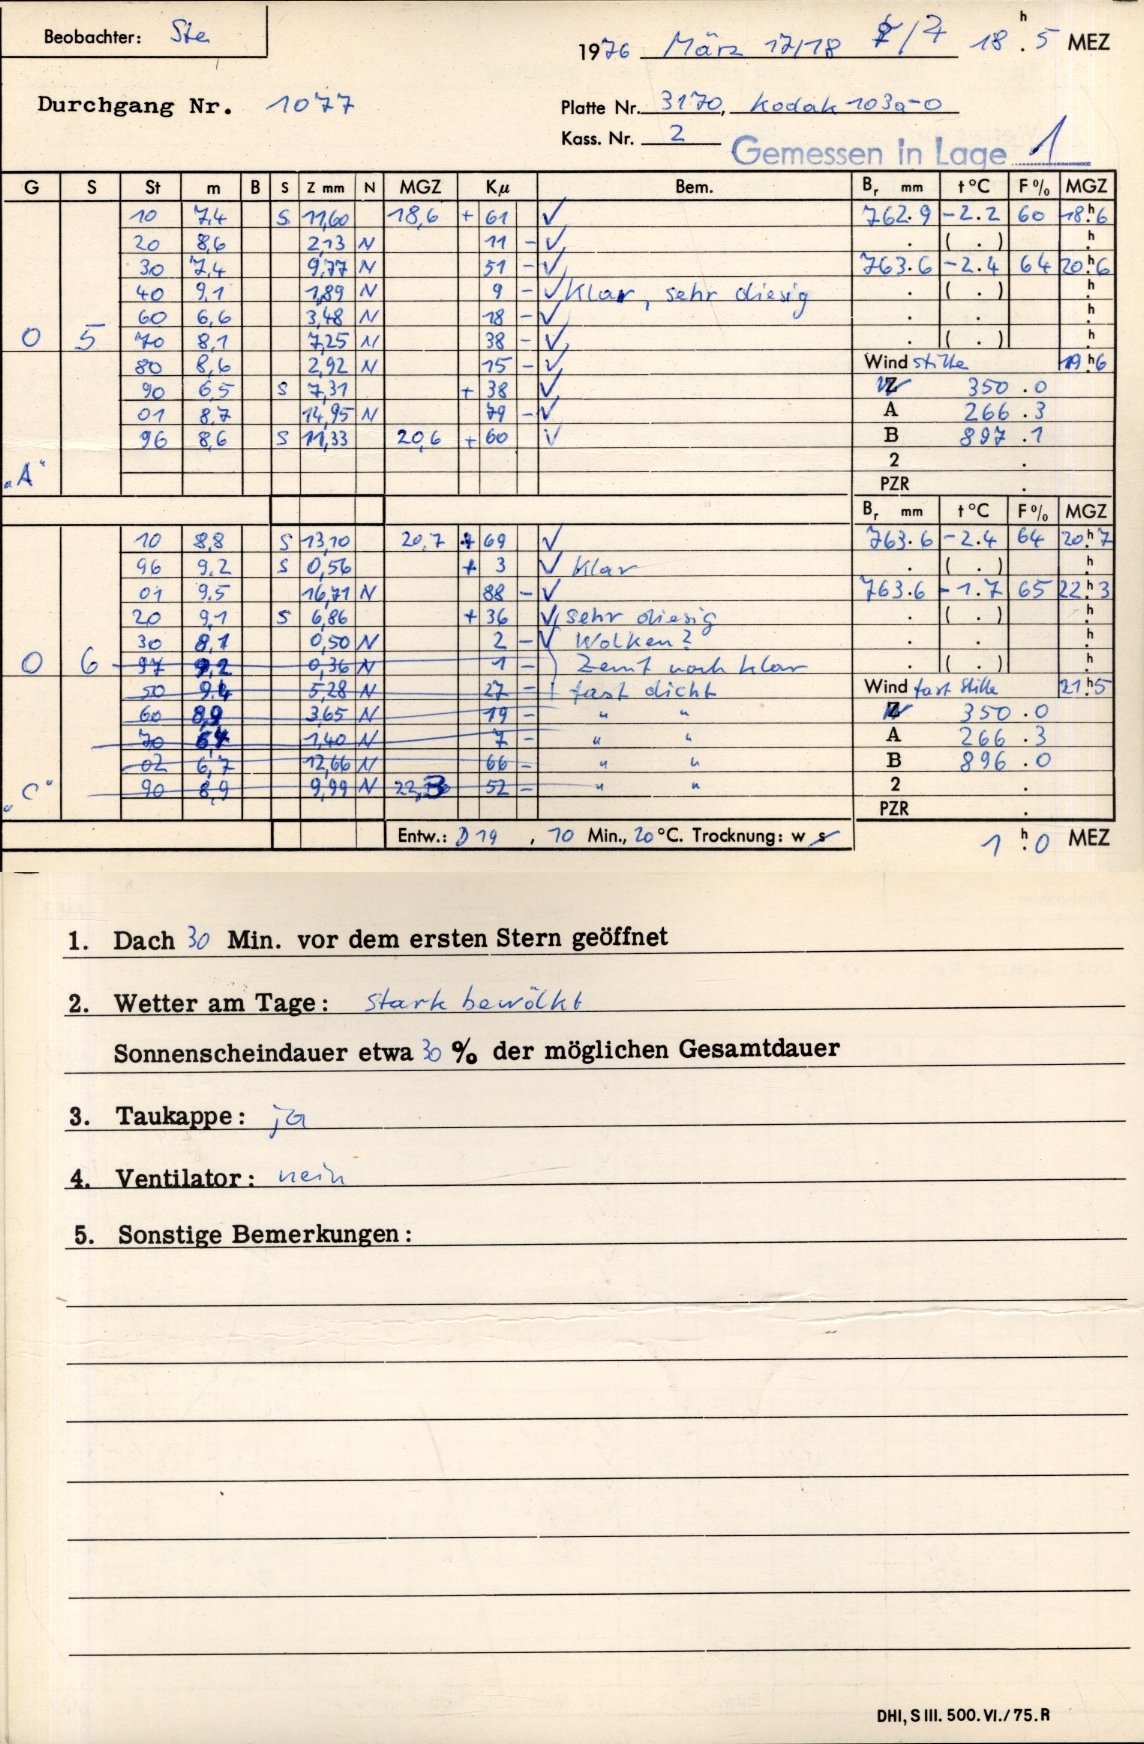 Beobachter: Ste
1976 März 17/18 /7 18 h . 5 MEZ
Durchgang Nr. 1077
Platte Nr. 3170, Kodak 103a-0
Kass. Nr. 2
Gemessen in Lage 1
G S St m B S Z mm N MGZ Kμ Bem. Br mm t °C F% MGZ
10 7,4 S 11,60 18,6 + 61 ✓ 762.9 -2.2 60 18.h6
20 8,6 2,13 N 11 - ✓ . ( . ) h
30 7,4 9,77 N 51 - ✓ 763.6 -2.4 64 20.h6
40 9,1 1,89 N 9 - ✓ Klar, sehr diesig . ( . ) h
60 6,6 3,48 N 18 - ✓ . . h
0 5 70 8,1 7,25 N 38 - ✓ . ( . ) h
80 8,6 2,92 N 15 - ✓ Wind stille 19.h6
90 6,5 S 7,31 + 38 ✓ Z 350.0
01 8,7 14,95 N 79 - ✓ A 266.3
96 8,6 S 11,33 20,6 + 60 ✓ B 897.1
2 .
"A" PZR .
Br mm t °C F% MGZ
10 8,8 S 13,10 20,7 + 69 ✓ 763.6 -2.4 64 20.h7
96 9,2 S 0,56 + 3 ✓ klar . ( . ) h
01 9,5 16,71 N 88 - ✓ 763.6 -1.7 65 22.h3
20 9,1 S 6,86 + 36 ✓ sehr diesig . ( . ) h
30 8,1 0,50 N 2 - ✓ Wolken? . . h
0 6 97 9,2 0,36 N 1 - Zenit noch klar . ( . ) h
50 9,4 5,28 N 27 - fast dicht Wind fast Stille 21.h5
60 8,9 3,65 N 19 - " " Z 350.0
70 6,4 1,40 N 7 - " " A 266.3
02 6,7 12,66 N 66 - " " B 896.0
"C" 90 8,9 9,99 N 22,3 52 - " " 2 .
PZR .
Entw.: D 19 , 10 Min., 20 °C. Trocknung: w s 1 h . 0 MEZ
1. Dach 30 Min. vor dem ersten Stern geöffnet
2. Wetter am Tage: stark bewölkt
Sonnenscheindauer etwa 30 % der möglichen Gesamtdauer
3. Taukappe: ja
4. Ventilator: nein
5. Sonstige Bemerkungen:
DHI, S III. 500. VI./75. R